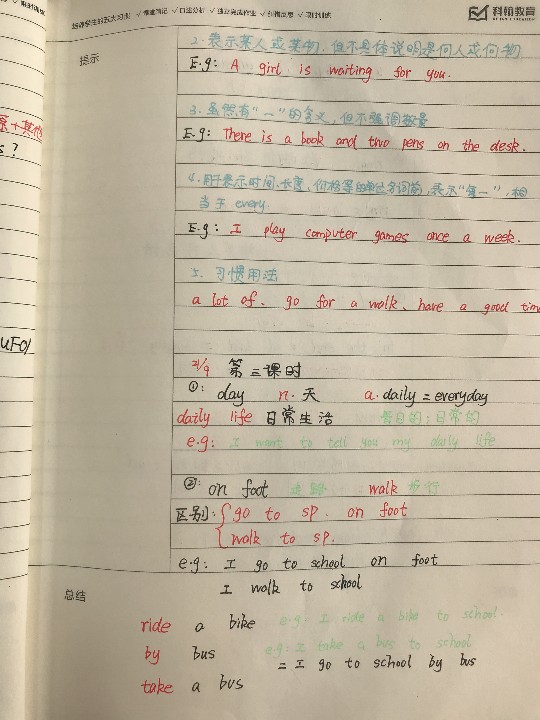 培养学生的五大习惯 ✓ 课堂笔记 ✓ 口述分析 ✓ 独立完成作业 ✓ 纠错反思 ✓ 限时训练
科翰教育
提示
2. 表示某人或某物, 但不具体说明是何人或何物
E.g: A girl is waiting for you.
3. 虽然有"一"的含义, 但不强调数量
E.g: There is a book and two pens on the desk.
4. 用于表示时间、长度、价格等的单位名词前, 表示"每一", 相
当于 every.
E.g: I play computer games once a week.
5. 习惯用法
a lot of、go for a walk、have a good time
UFO
21/9 第三课时
①: day n. 天 a. daily = everyday
daily life 日常生活 每日的; 日常的
e.g: I want to tell you my daily life
②: on foot walk 步行
区别: go to sp. on foot
walk to sp.
e.g: I go to school on foot
I walk to school
总结
ride a bike e.g: I ride a bike to school.
by bus e.g: I take a bus to school
= I go to school by bus
take a bus